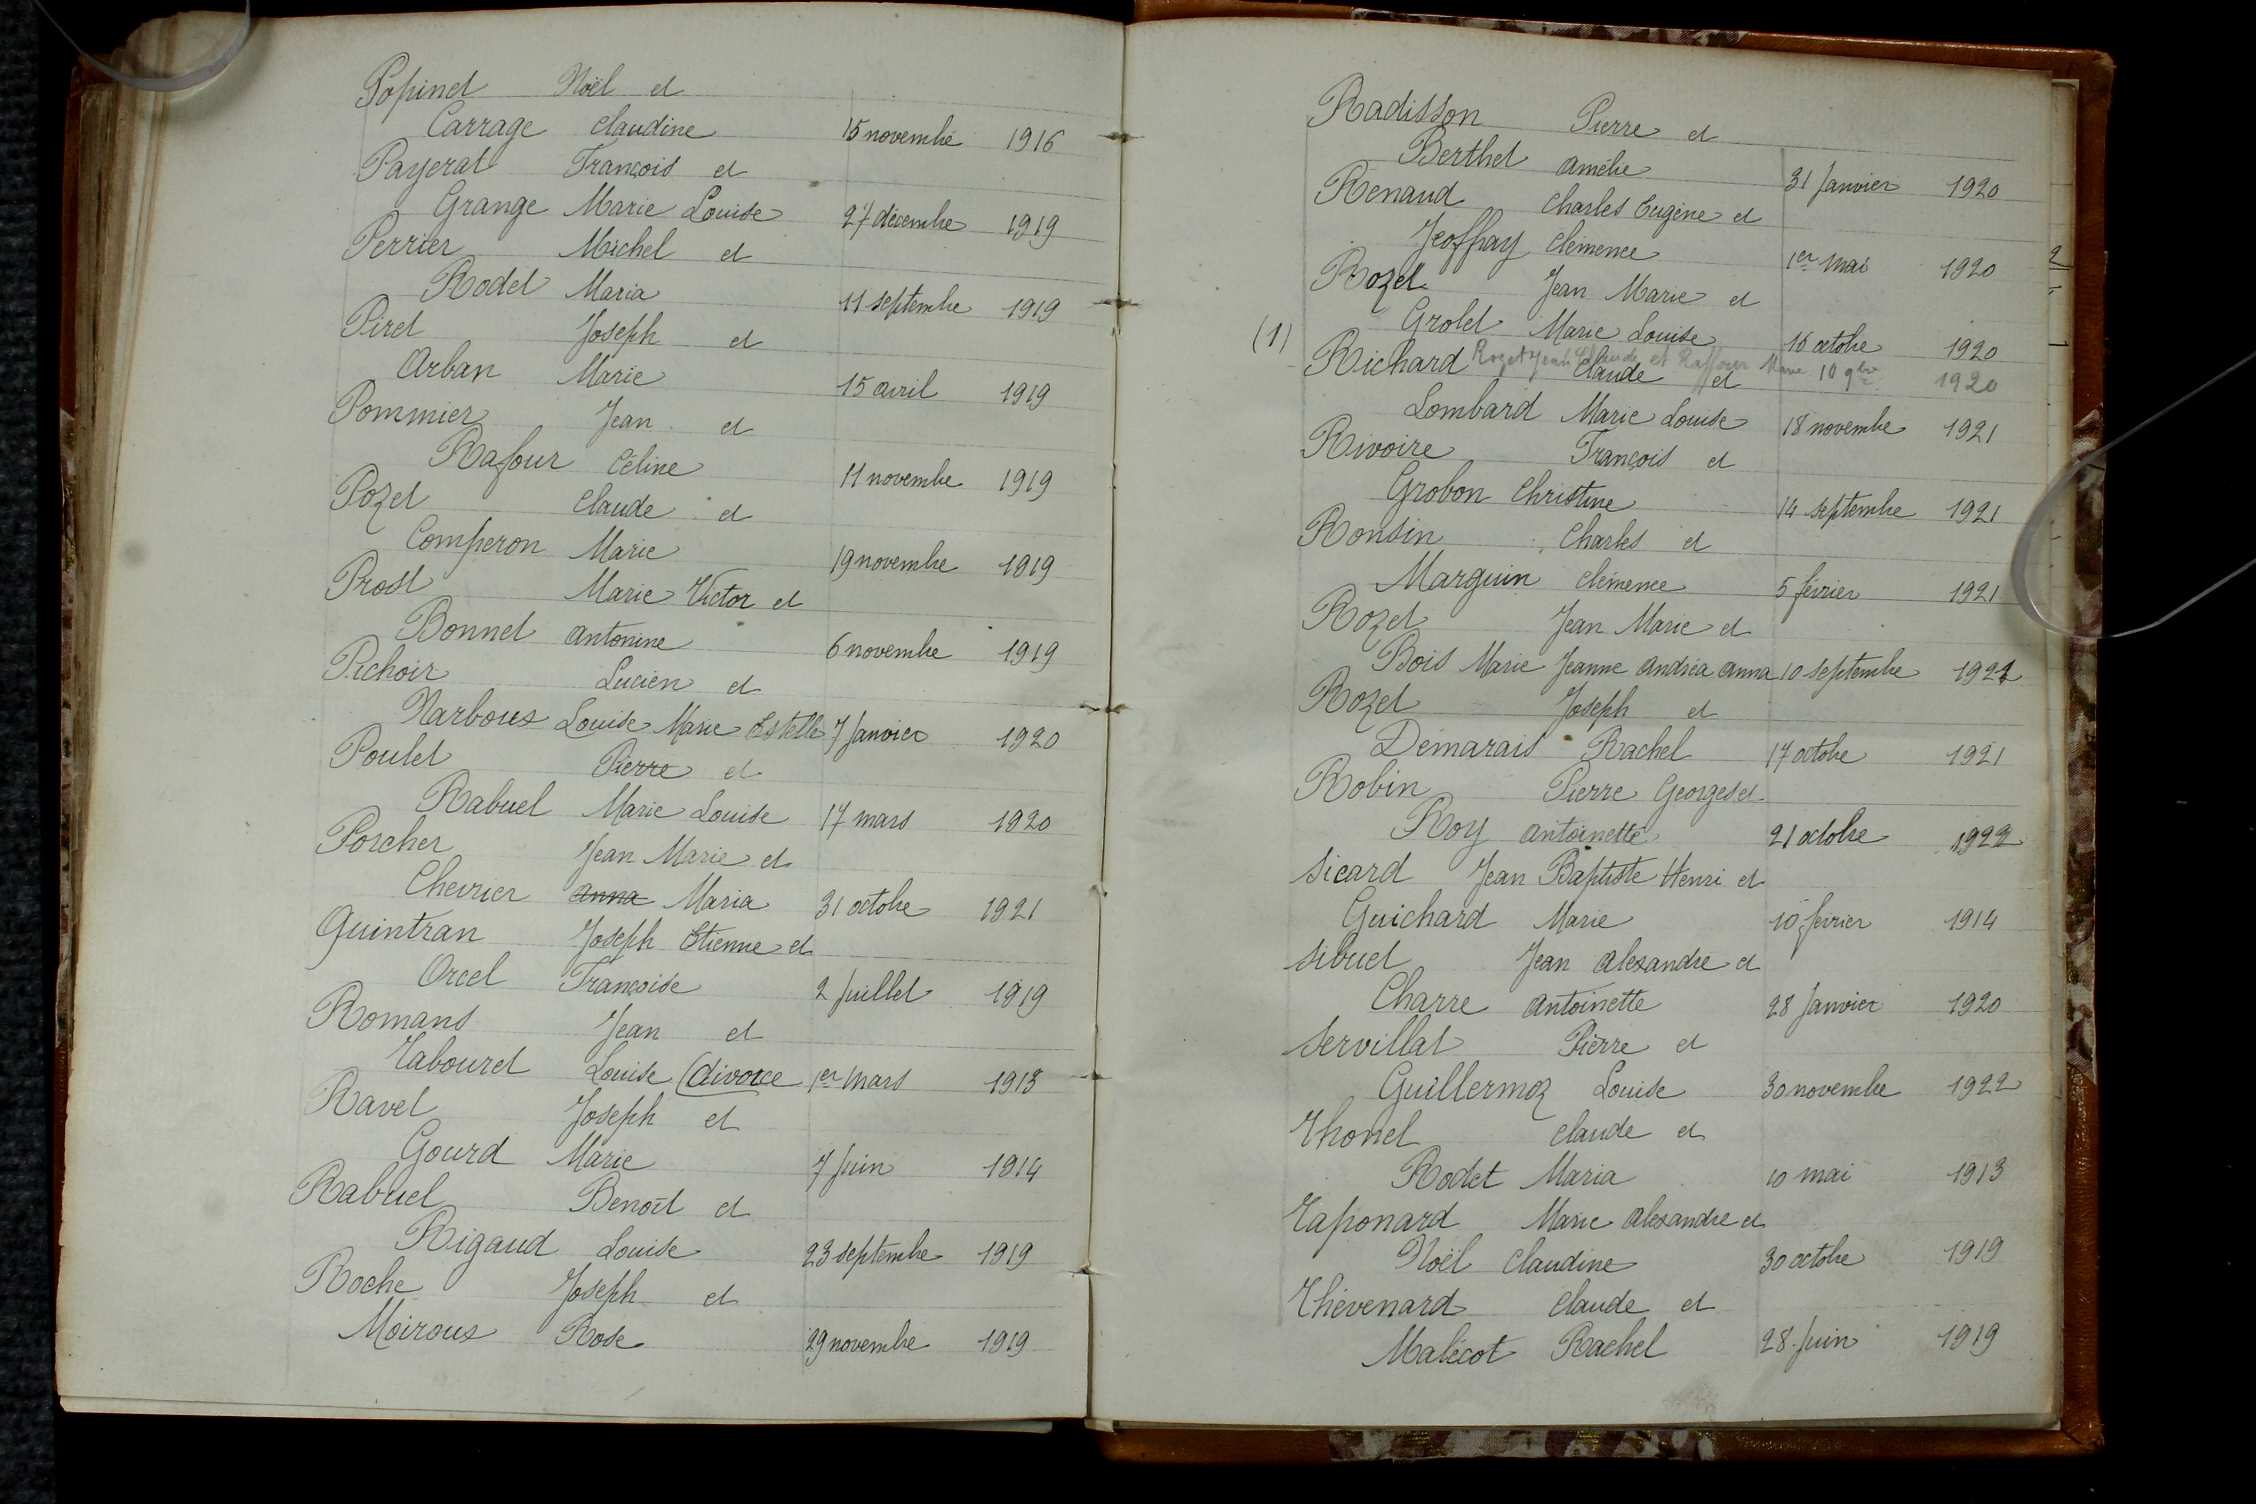 Popinet Noël et
Carrage Claudine 15 novembre 1916
Payerat François et
Grange Marie Louise 27 décembre 1919
Perrier Michel et
Rodet Maria 11 septembre 1919
Piret Joseph et
Arban Marie 15 avril 1919
Pommier Jean et
Rafour Céline 11 novembre 1919
Pozet Claude et
Comperon Marie 19 novembre 1919
Prost Marie Victor et
Bonnet Antonine 6 novembre 1919
Pichoir Lucien et
Narboux Louise Marie Estelle 7 Janvier 1920
Poulet Pierre et
Rabuel Marie Louise 17 mars 1920
Porcher Jean Marie et
Chevrier Anna Maria 31 octobre 1921
Quintran Joseph Etienne et
Orcel Françoise 2 Juillet 1919
Romans Jean et
Tabouret Louise (divorce 1er mars 1913
Ravet Joseph et
Gourd Marie 7 Juin 1914
Rabuel Benoît et
Rigaud Louise 23 septembre 1919
Roche Joseph et
Moiroux Rose 29 novembre 1919
Radisson Pierre et
Berthet Amélie 31 Janvier 1920
Renaud Charles Eugène et
Jeoffray Clémence 1er mai 1920
Rozet Jean Marie et
Grolet Marie Louise 16 octobre 1920
(1) Rozet Jean Claude et Raffour Marie 10 9bre 1920
Richard Claude et
Lombard Marie Louise 18 novembre 1921
Rivoire François et
Grobon Christine 14 septembre 1921
Ronsin Charles et
Marguin Clémence 5 février 1921
Rozet Jean Marie et
Bois Marie Jeanne Andréa Anna 10 septembre 1921
Rozet Joseph et
Démarais Rachel 17 octobre 1921
Robin Pierre Georges et
Roy Antoinette 21 octobre 1922
Sicard Jean Baptiste Henri et
Guichard Marie 10 février 1914
Sibuet Jean Alexandre et
Charre Antoinette 28 Janvier 1920
Servillat Pierre et
Guillermoz Louise 30 novembre 1922
Thonel Claude et
Rodet Maria 10 mai 1913
Taponard Marie Alexandre et
Noël Claudine 30 octobre 1919
Thévenard Claude et
Malécot Rachel 28 Juin 1919